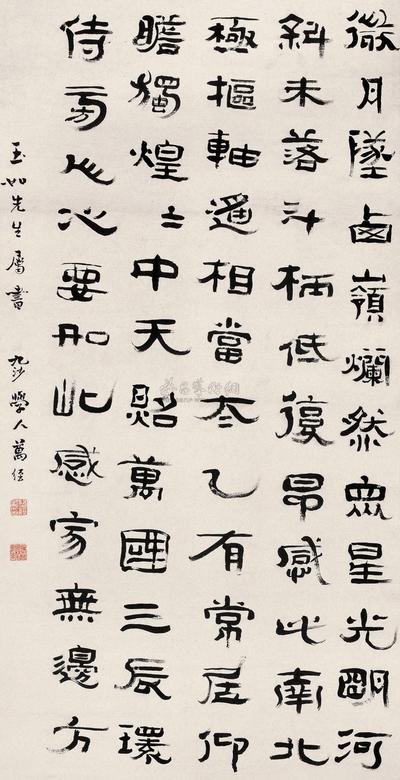 微月墜西嶺爛然眾星光明河
斜未落斗柄低復昂感此南北
極樞軸遙相當太乙有常居仰
瞻獨煌〻中天照萬國三辰環
侍旁人心要如此感寂無邊方
玉如先生屬書 九沙學人萬經